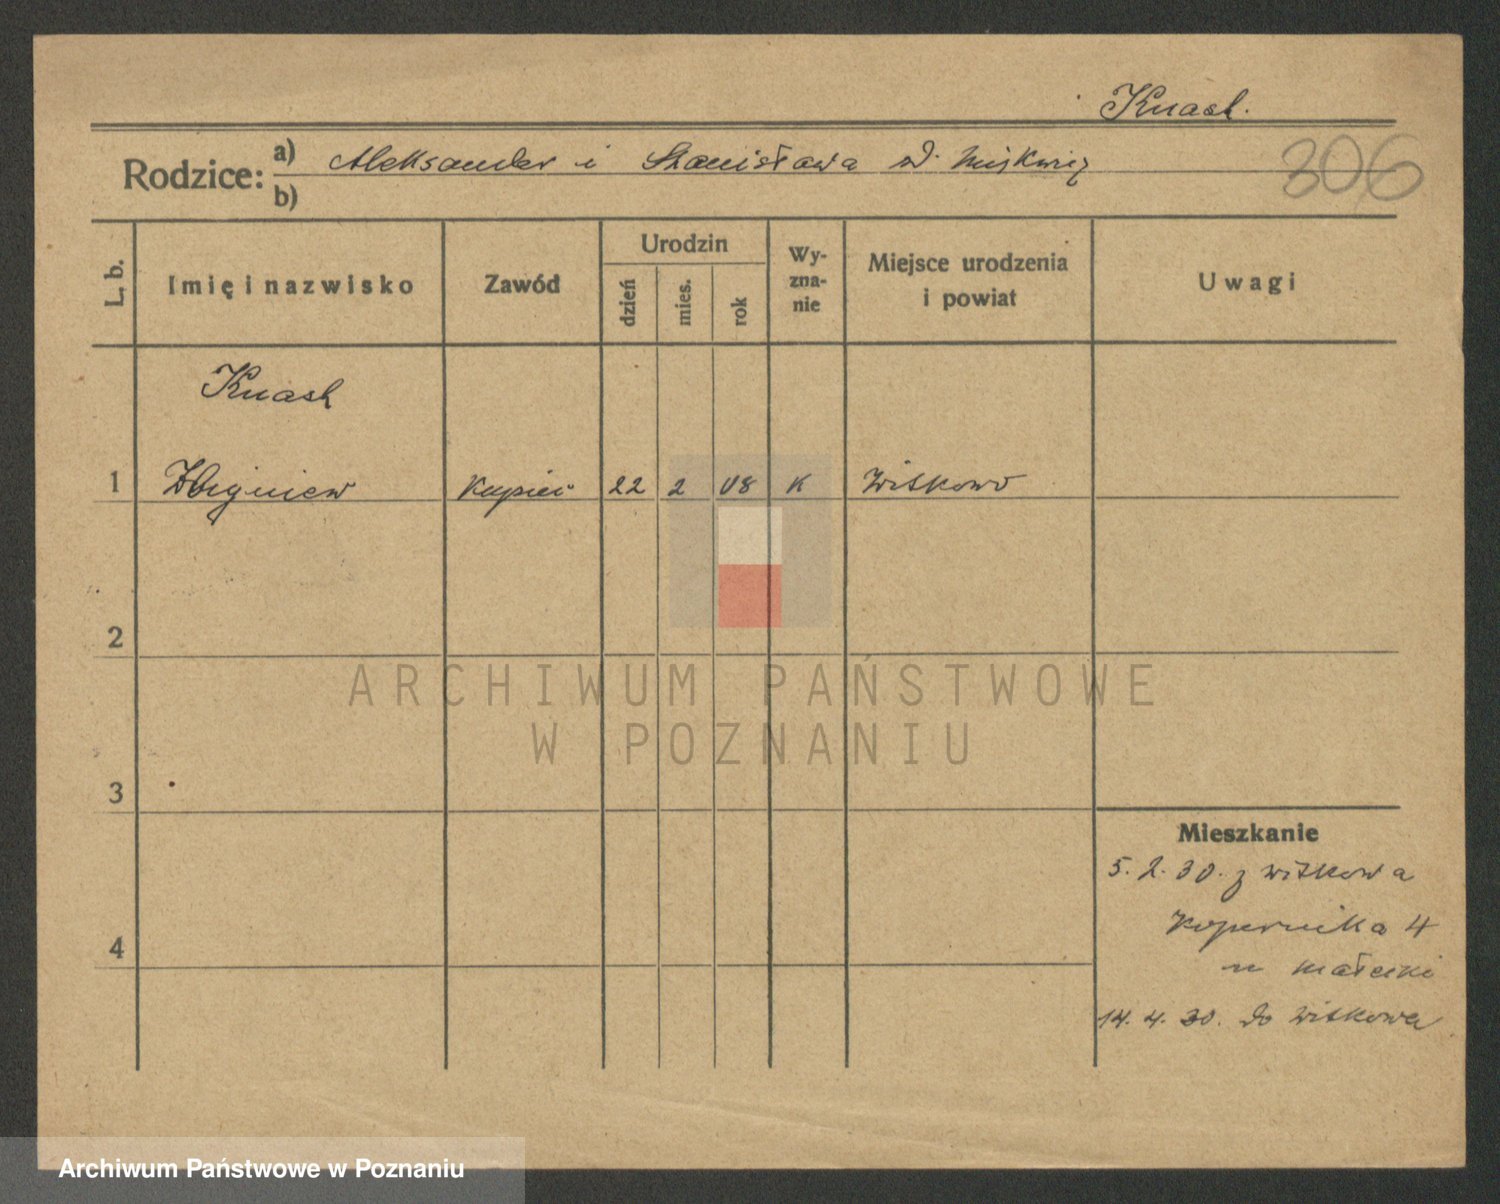 Knast.
Rodzice: a) Aleksander i Stanisława
b)
306
L. b.
Imię i nazwisko
Zawód
Urodzin
dzień
mies.
rok
Wy-
zna-
nie
Miejsce urodzenia
i powiat
Uwagi
Knast
1 Zbigniew kupiec 22 2 08 K Witkowo
2
ARCHIWUM PAŃSTWOWE
W POZNANIU
3
Mieszkanie
5. 2. 30. z Witkowa
Kopernika 4
4
u Małecki
14. 4. 30. do Witkowa
Archiwum Państwowe w Poznaniu